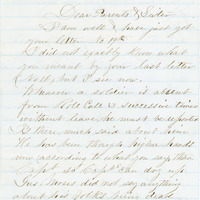 Dear Parents & Sister
I am well & have just got
your letter
I did not exactly know what
you meant by your last letter
but I see now.
Whenever a soldier is absent
from Roll Call 3 successive times
without leave he must be reported
Is there much said about him
He has been thought higher heads
in according to what you say than
Capt. so Capt. can dog up.
Jus did not say anything
about his folks being dead